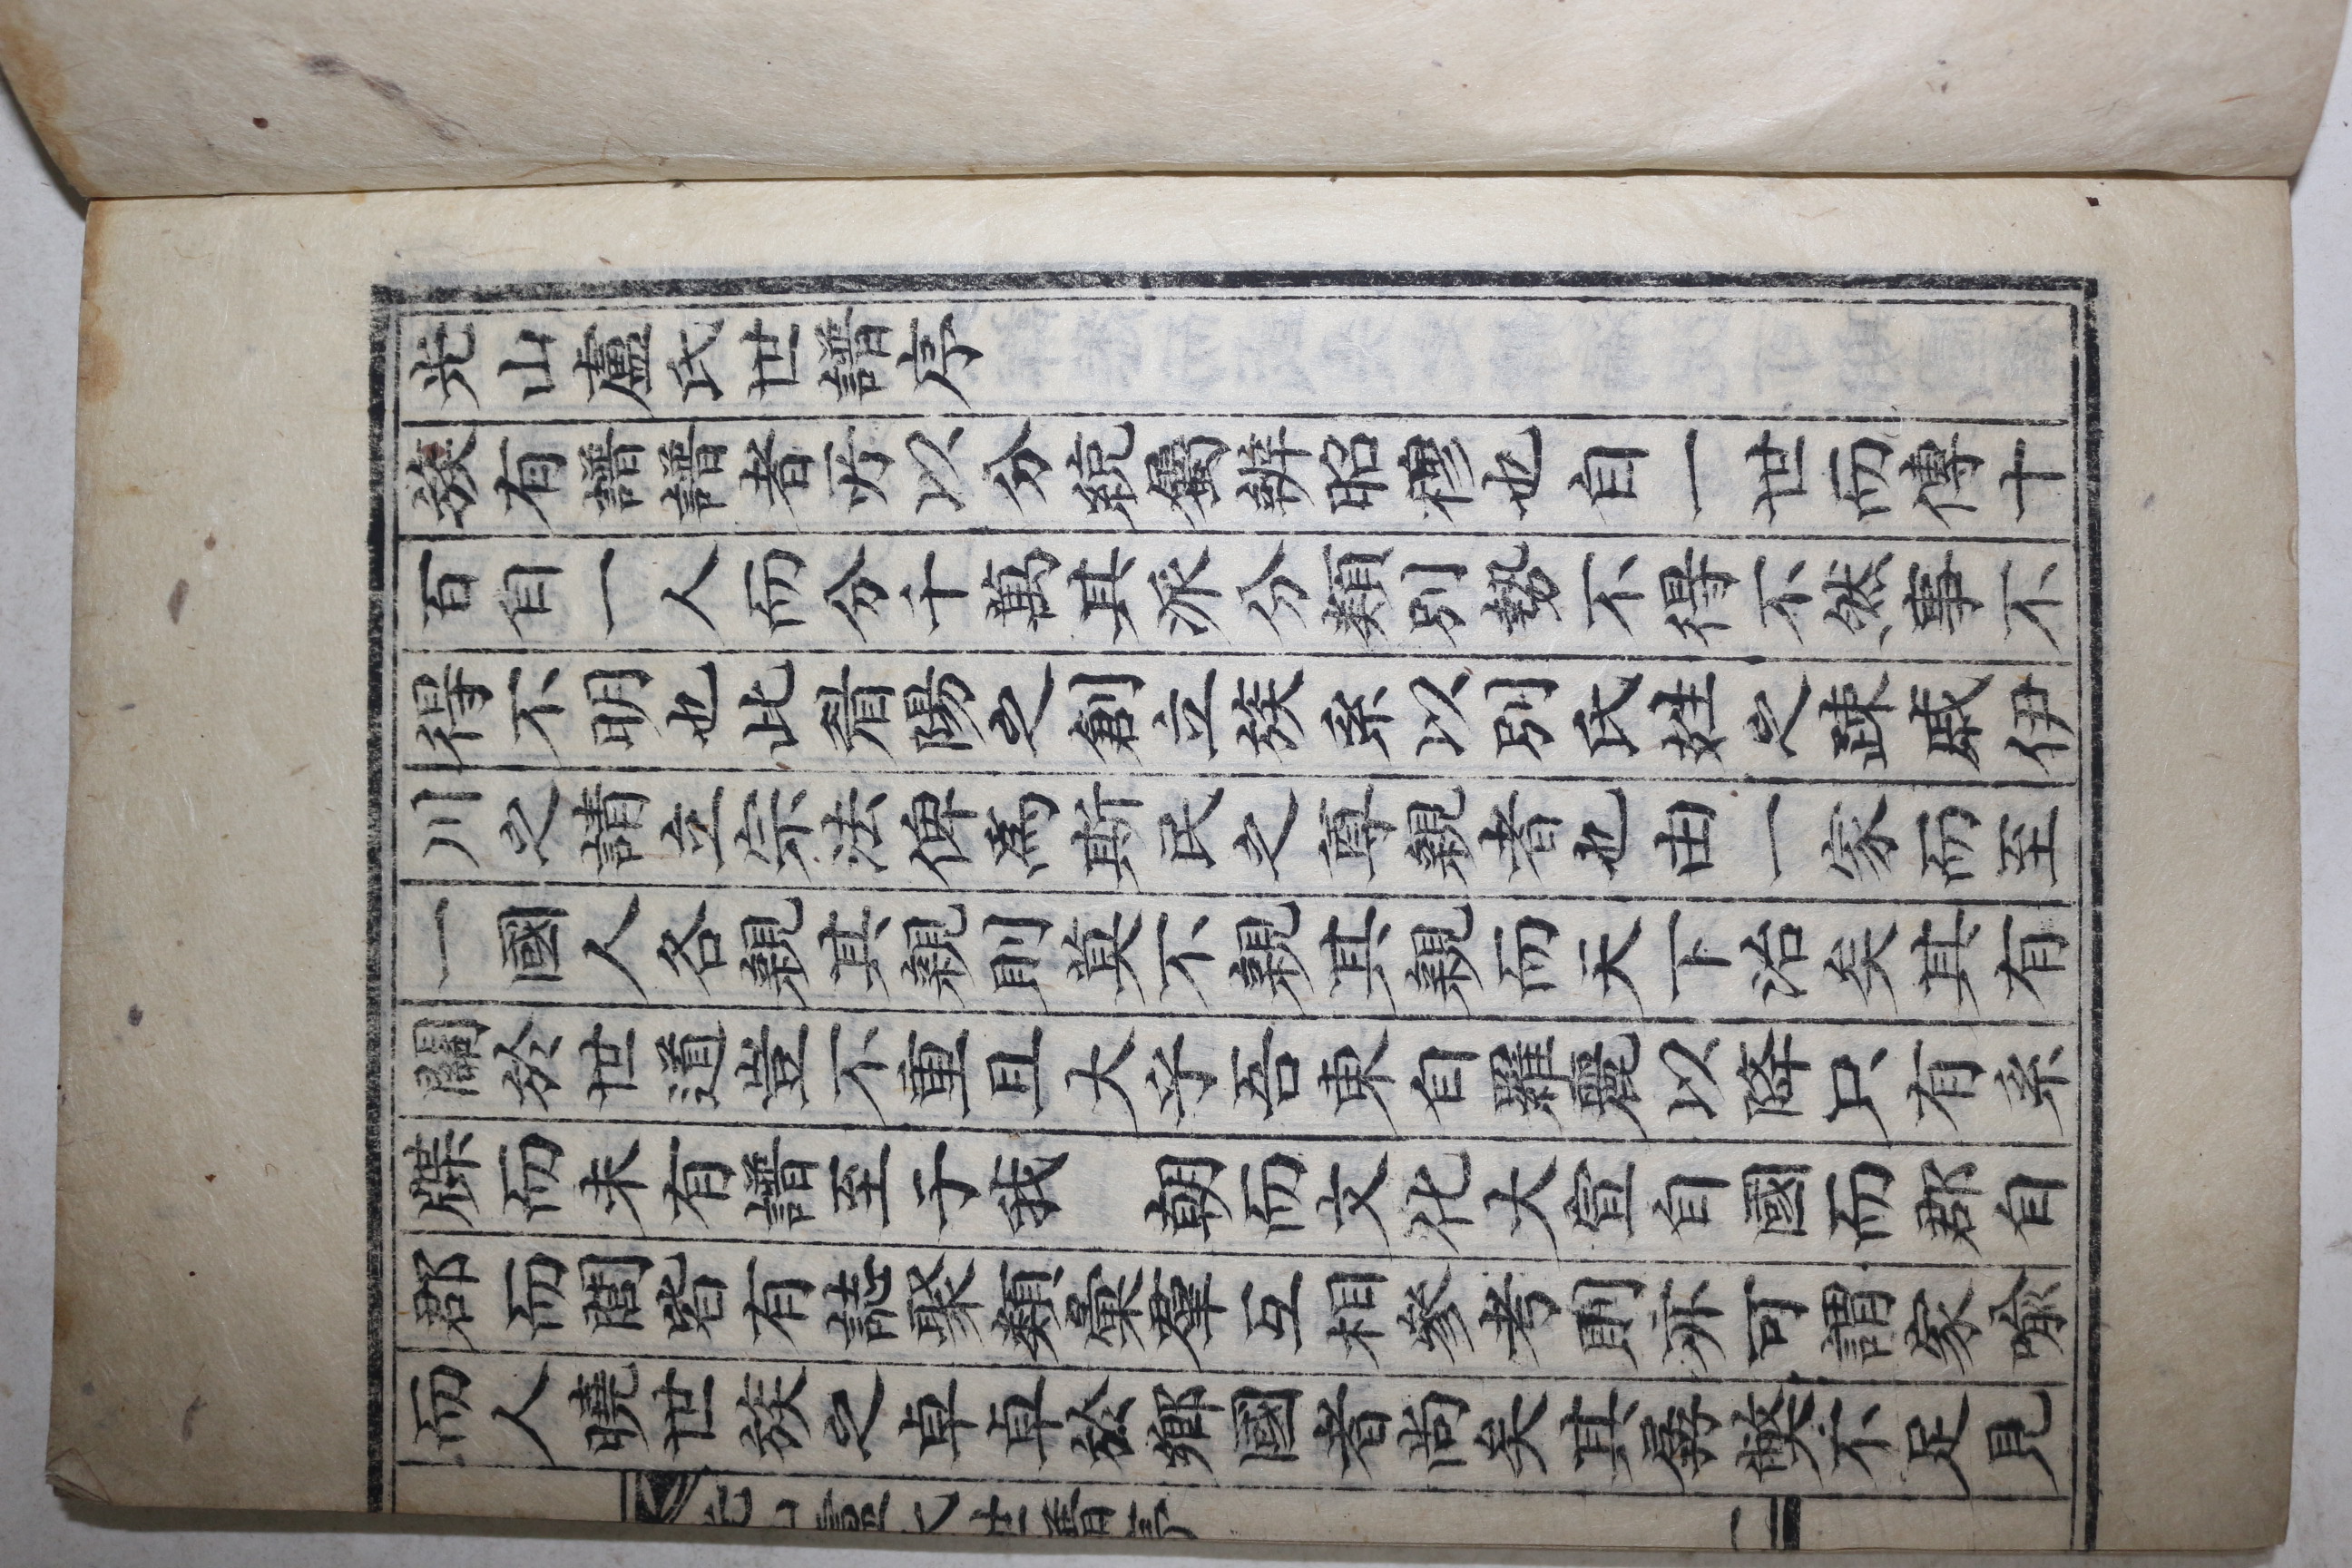 光山盧氏世譜序
族有譜譜者所以分統屬辨昭穆也自一世而傳十
百自一人而分千萬其派分類別勢不得不然事不
得不明也此眉陽之創立族系以別氏姓之踈戚伊
川之請立宗法俾爲斯民之尊親者也由一家而至
一國人各親其親則莫不親其親而天下治矣其有
關於世道豈不重且大乎吾東自羅麗以降只有系
牒而未有譜至于我 朝而文化大宣自國而郡自
郡而閭皆有誌聚類彙羣互相叅考則亦可謂家喩
而人曉世族之卓卓於鄕國者尙矣其不足見
光山盧氏世譜序